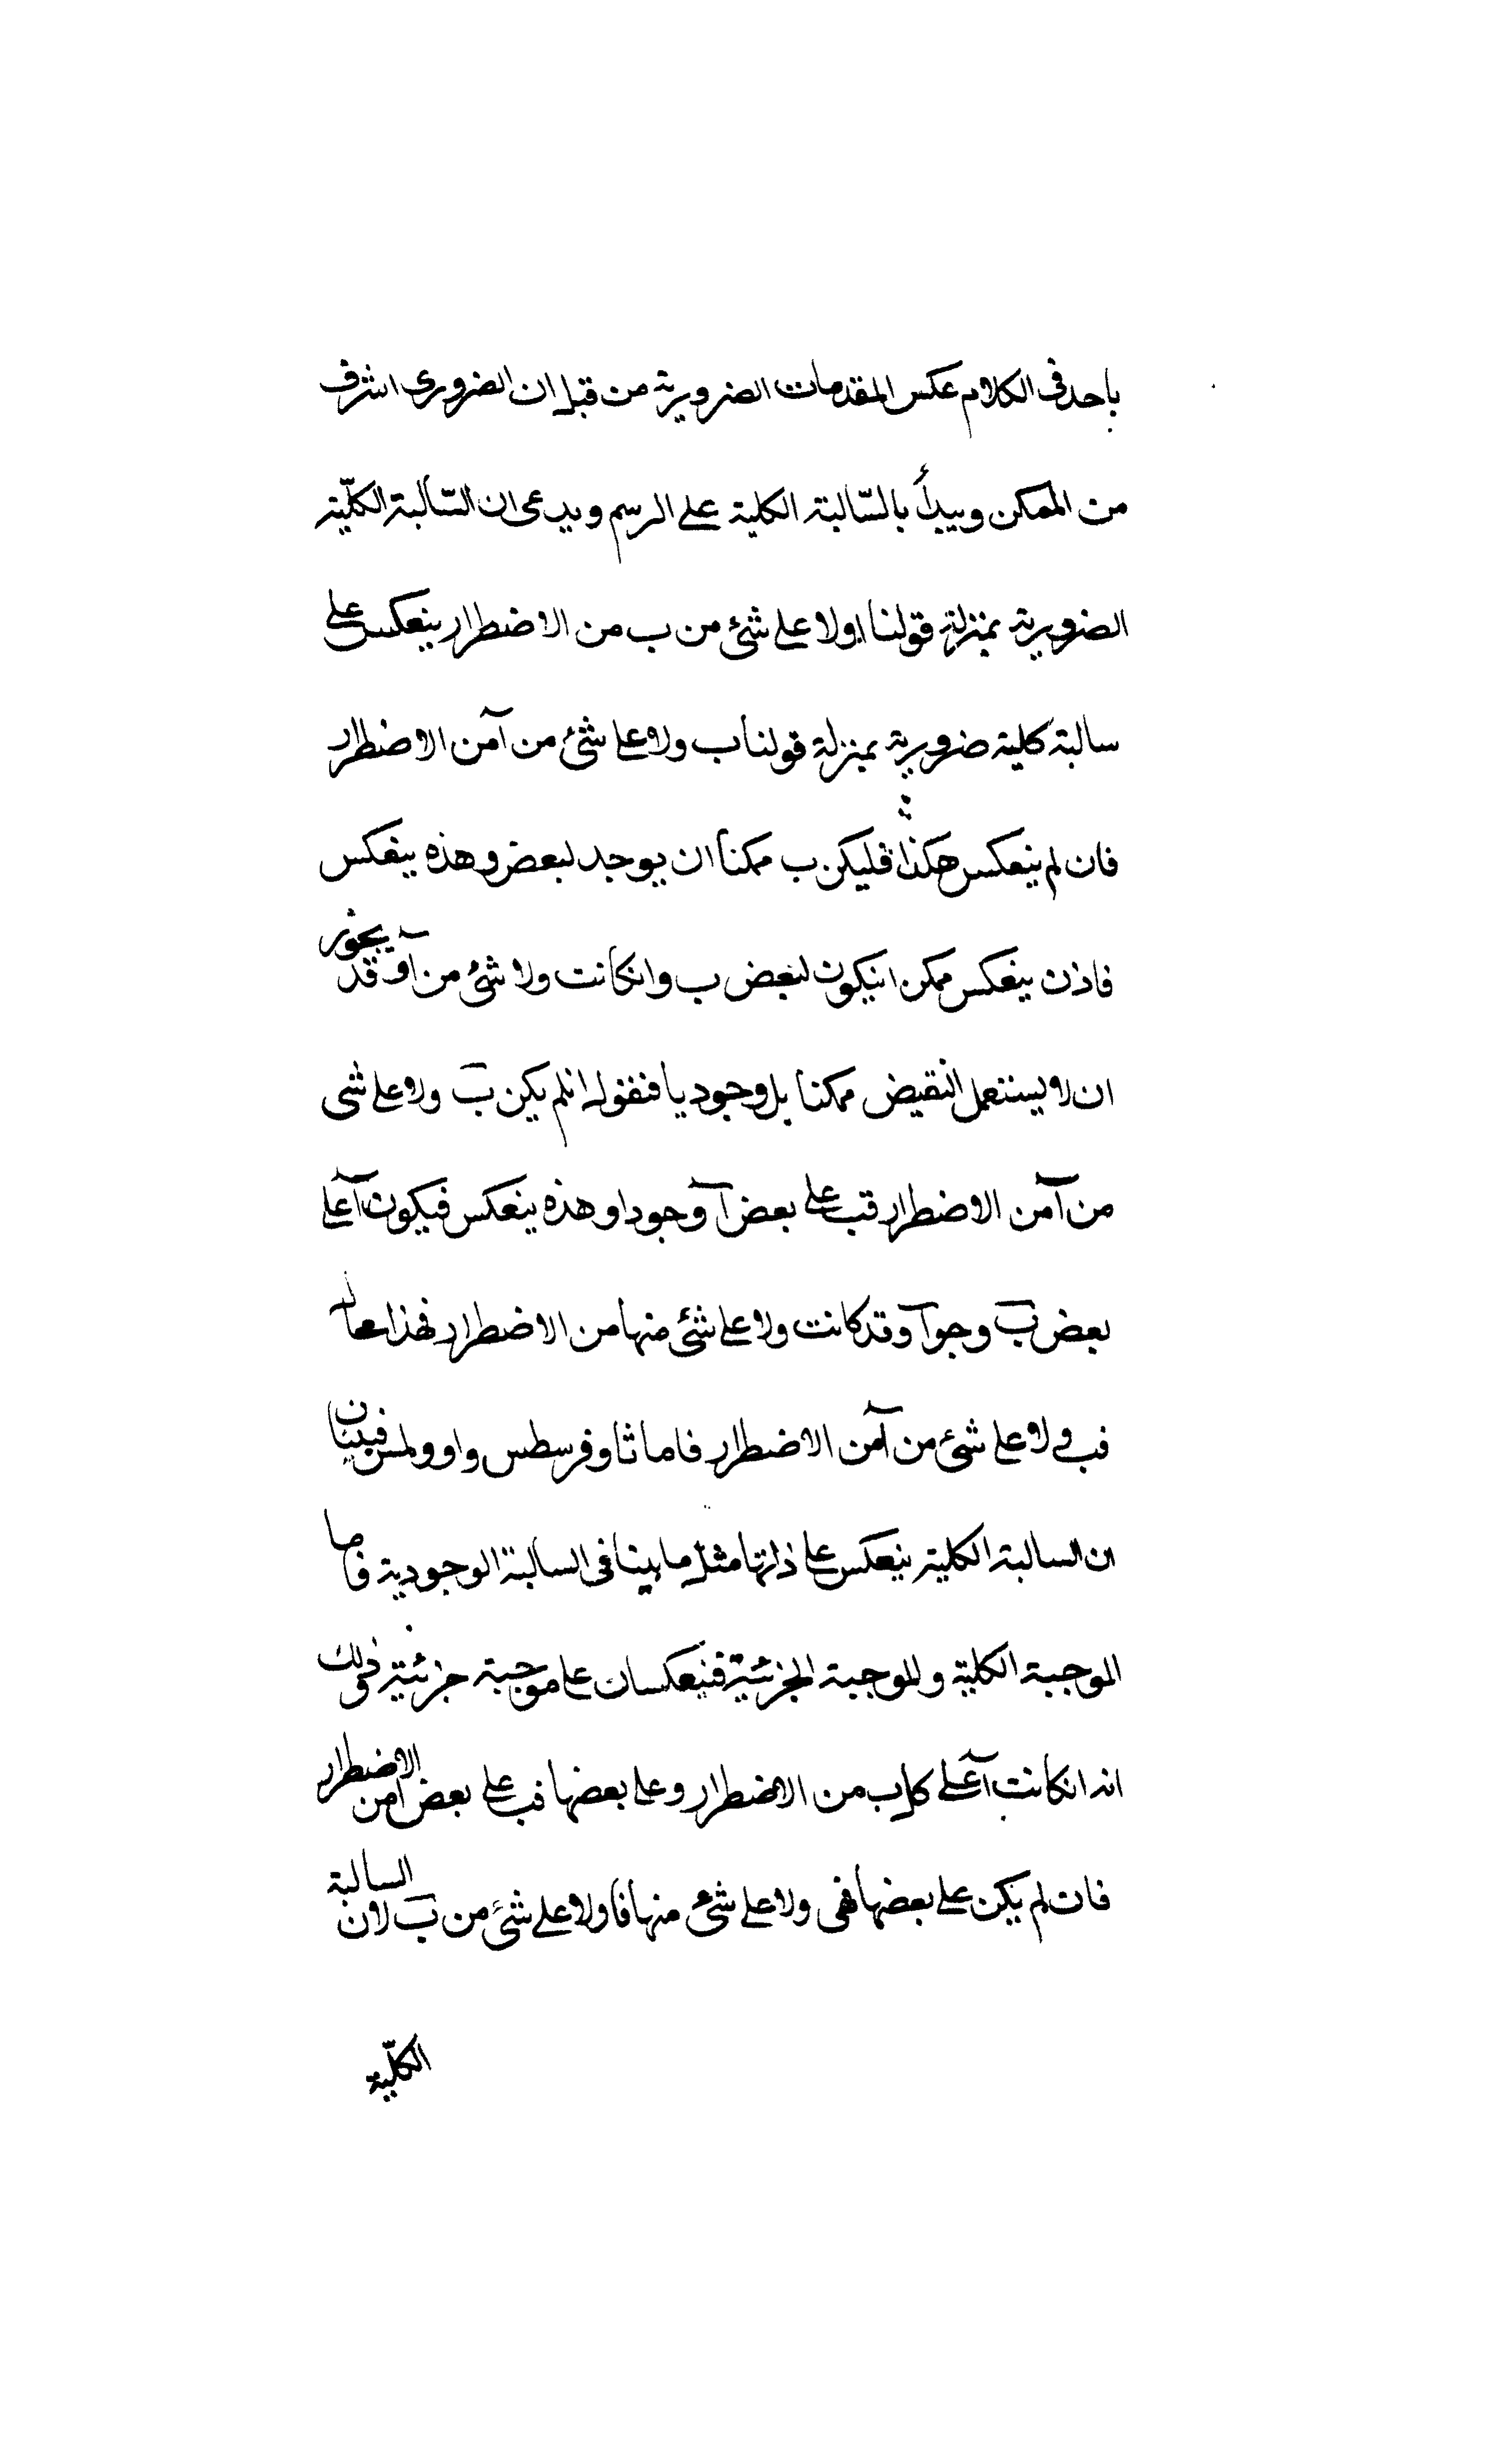 باحد فى الكلام عكس المقدمات الضرورية من قبل ان الضرورى اشرف
من الممكن ويبدأ بالسّالبة الكلية على الرسم ويدعى ان السّالبة الكلّية
الضرورية بمنزلة قولنا ا ولا على شئ من ب من الاضطرار ينعكس على
سالبة كلية ضرورية بمنزلة قولنا ب ولا على شئ من آ من الاضطرار
فان لم ينعكس هكذا فليكن ب ممكنا ان يوجد لبعض وهذه ينعكس
فاذن ينعكس ممكن انيكون لبعض ب وانكانت ولا شئ من آ وقد يجوز
ان لا يستعمل النقيض ممكنا بل وجوديا فنقول انلم يكن بَ ولا على شى
من آ من الاضطرار فب على بعض آ وجودا وهذه ينعكس فيكون آ على
بعض بَ وجوآ وقد كانت ولا على شئ منها من الاضطرار فهذا محال
فب فى لا على شئ من آ من الاضطرار فاما ثاوفرسطس واوولمس فيبينان
ان السالبة الكلية ينعكس على ذاتها مثل ما بينا فى السالبة الوجودية فاما
الموجبة الكلية والموجبة الجزئية فينعكسان على موجبة جزئية وذلك
انه انكانت آ على كل ب من الاضطرار وعلى بعضها فب على بعض ا من الاضطرار
فان لم يكن على بعضها فهى ولا على شئ منها فا ولا على شئ من بَ لان السالبة
الكلّية